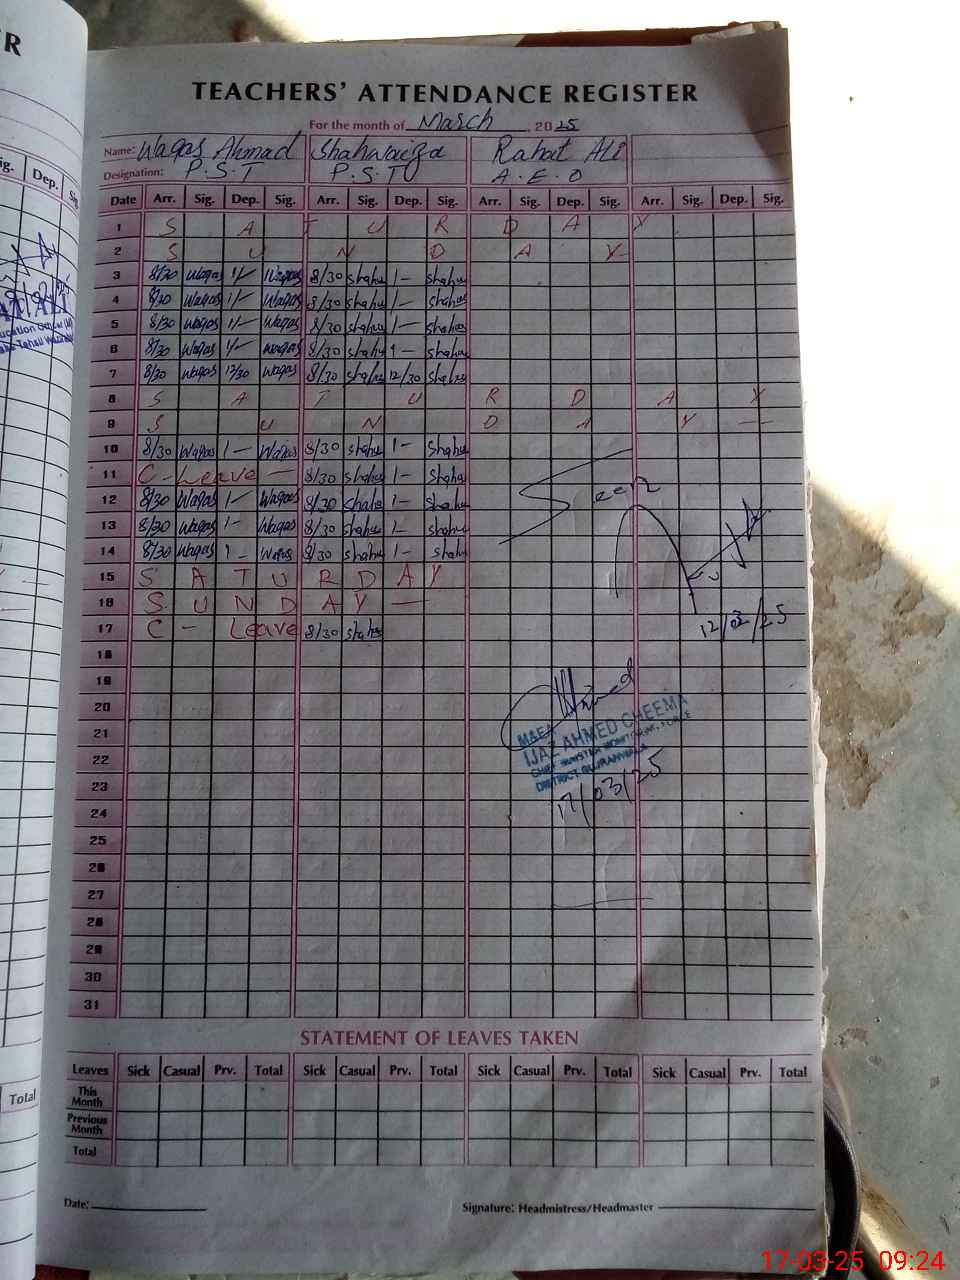 R
TEACHERS' ATTENDANCE REGISTER
For the month of March, 2025
Name: Waqas Ahmad Shahwaiza Rahat Ali
Designation: P.S.T P.S.T A.E.O
ig. Dep. Sig.
Date Arr. Sig. Dep. Sig. Arr. Sig. Dep. Sig. Arr. Sig. Dep. Sig. Arr. Sig. Dep. Sig.
1 S A T U R D A Y
2 S U N D A Y
3 8/30 Waqas 1/- Waqas 8/30 Shahw 1- Shahw
4 8/30 Waqas 1/- Waqas 8/30 Shahw 1- Shahw
5 8/30 Waqas 1/- Waqas 8/30 Shahw 1- Shahw
6 8/30 Waqas 1/- Waqas 8/30 Shahw 1- Shahw
7 8/30 Waqas 12/30 Waqas 8/30 Shahw 12/30 Shahw
8 S A T U R D A Y
9 S U N D A Y —
10 8/30 Waqas 1- Waqas 8/30 Shahw 1- Shahw
11 C-Leave — 8/30 Shahw 1- Shahw
12 8/30 Waqas 1- Waqas 8/30 Shahw 1- Shahw
Seen
13 8/30 Waqas 1- Waqas 8/30 Shahw 1- Shahw
14 8/30 Waqas 1- Waqas 8/30 Shahw 1- Shahw
15 S A T U R D A Y
16 S U N D A Y —
17 C - Leave 8/30 Shahw
12/03/25
18
19
20
21
22
23
24
25
26
27
28
29
30
31
M&EA
IJAZ AHMED CHEEMA
CHIEF MINISTER MONITORING FORCE
DISTRICT GUJRANWALA
17/03/25
STATEMENT OF LEAVES TAKEN
Leaves Sick Casual Prv. Total Sick Casual Prv. Total Sick Casual Prv. Total Sick Casual Prv. Total
This Month
Previous Month
Total
Total
Date: Signature: Headmistress/Headmaster
17-03-25 09:24